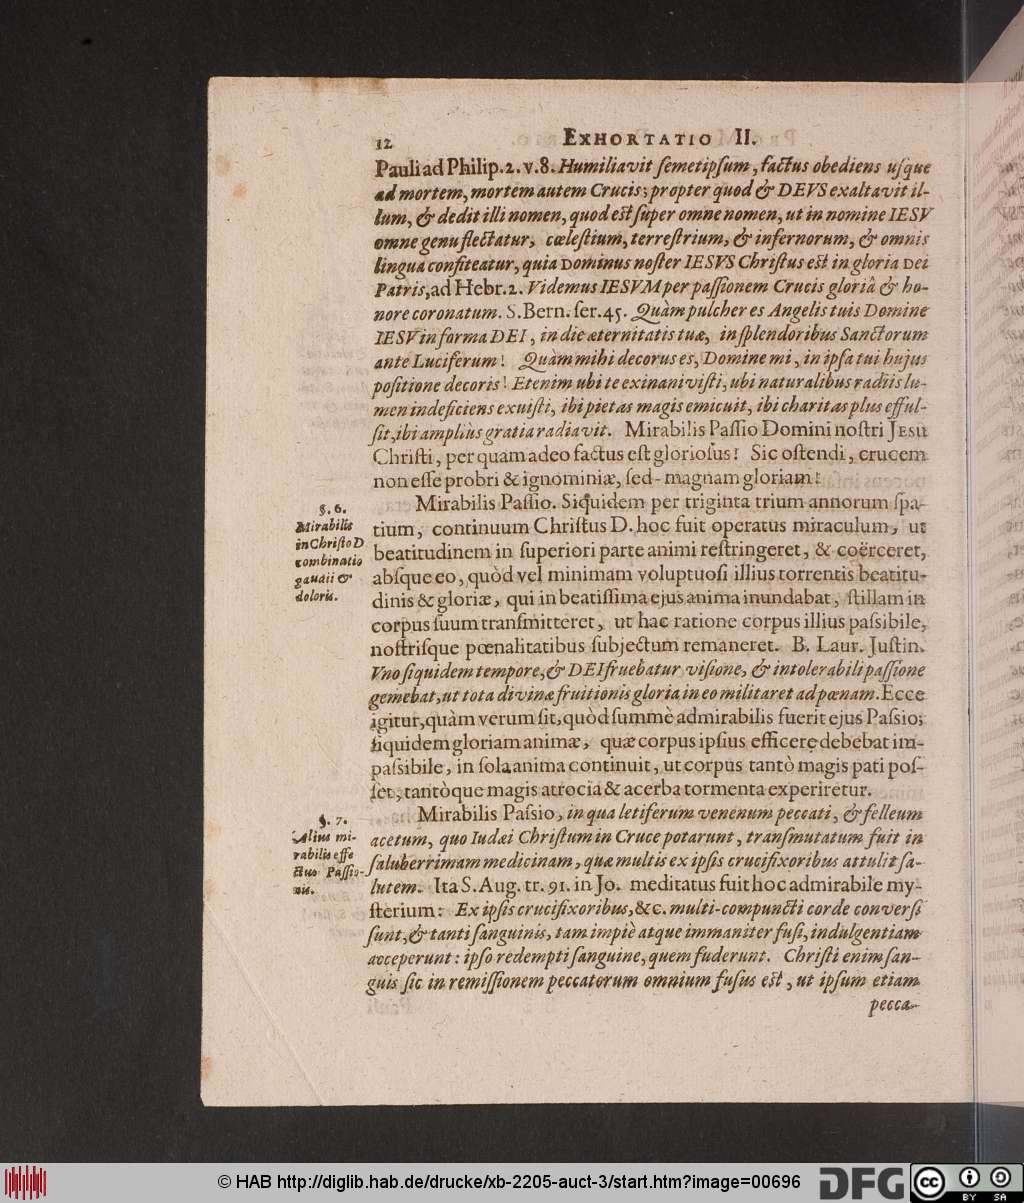 12 EXHORTATIO II.
Pauli ad Philip. 2. v. 8. Humiliavit ſemetipſum, factus obediens uſque
ad mortem, mortem autem Crucis; propter quod & DEVS exaltavit il-
lum, & dedit illi nomen, quod eſt ſuper omne nomen, ut in nomine IESV
omne genu flectatur, cœleſtium, terreſtrium, & infernorum, & omnis
lingua confiteatur, quia Dominus noſter IESVS Chriſtus eſt in gloria Dei
Patris, ad Hebr. 2. Videmus IESVM per paſſionem Crucis gloriâ & ho-
nore coronatum. S. Bern. ſer. 45. Quàm pulcher es Angelis tuis Domine
IESV in forma DEI, in die æternitatis tuæ, in ſplendoribus Sanctorum
ante Luciferum! Quàm mihi decorus es, Domine mi, in ipſa tui hujus
poſitione decoris! Etenim ubi te exinaniviſti, ubi naturalibus radiis lu-
men indeficiens exuiſti, ibi pietas magis emicuit, ibi charitas plus efful-
ſit, ibi ampliùs gratia radiavit. Mirabilis Paſſio Domini noſtri JESU
Chriſti, per quam adeo factus eſt glorioſus! Sic oſtendi, crucem
non eſſe probri & ignominiæ, ſed magnam gloriam!
§. 6.
Mirabilis
in Chriſto D
combinatio
gaudii &
doloris.
Mirabilis Paſſio. Siquidem per triginta trium annorum ſpa-
tium, continuum Chriſtus D. hoc fuit operatus miraculum, ut
beatitudinem in ſuperiori parte animi reſtringeret, & coërceret,
abſque eo, quòd vel minimam voluptuoſi illius torrentis beatitu-
dinis & gloriæ, qui in beatiſſima ejus anima inundabat, ſtillam in
corpus ſuum tranſmitteret, ut hac ratione corpus illius paſsibile,
noſtriſque pœnalitatibus ſubjectum remaneret. B. Laur. Juſtin.
Vno ſiquidem tempore, & DEI fruebatur viſione, & intolerabili paſſione
gemebat, ut tota divinæ fruitionis gloria in eo militaret ad pœnam. Ecce
igitur, quàm verum ſit, quòd ſummè admirabilis fuerit ejus Paſsio;
ſiquidem gloriam animæ, quæ corpus ipſius efficere debebat im-
paſsibile, in ſola anima continuit, ut corpus tantò magis pati poſ-
ſet, tantòque magis atrocia & acerba tormenta experiretur.
§. 7.
Alius mi-
rabilis effe
ctus Paſſio-
nis.
Mirabilis Paſsio, in qua letiferum venenum peccati, & felleum
acetum, quo Iudæi Chriſtum in Cruce potarunt, tranſmutatum fuit in
ſaluberrimam medicinam, quæ multis ex ipſis crucifixoribus attulit ſa-
lutem. Ita S. Aug. tr. 91. in Jo. meditatus fuit hoc admirabile my-
ſterium: Ex ipſis crucifixoribus, &c. multi compuncti corde converſi
ſunt, & tanti ſanguinis, tam impiè atque immaniter fuſi, indulgentiam
acceperunt: ipſo redempti ſanguine, quem fuderunt. Chriſti enim ſan-
guis ſic in remiſſionem peccatorum omnium fuſus eſt, ut ipſum etiam
pecca-
© HAB http://diglib.hab.de/drucke/xb-2205-auct-3/start.htm?image=00696
DFG
cc BY SA